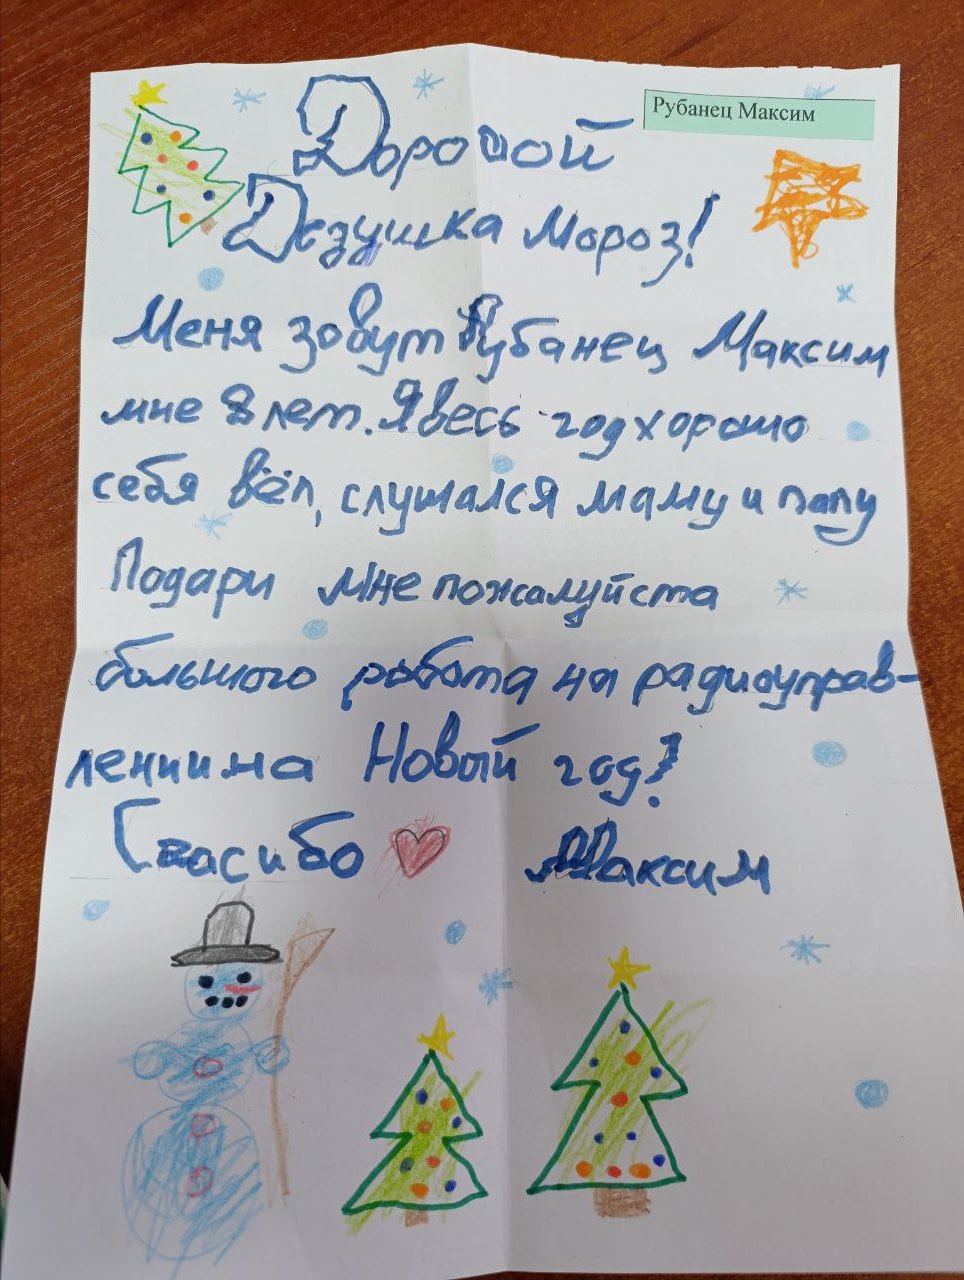 Рубанец Максим
Дорогой
Дедушка Мороз!
Меня зовут Рубанец Максим
мне 8 лет. Я весь год хорошо
себя вёл, слушался маму и папу
Подари мне пожалуйста
большого робота на радиоуправ-
лении на Новый год!
Спасибо Максим